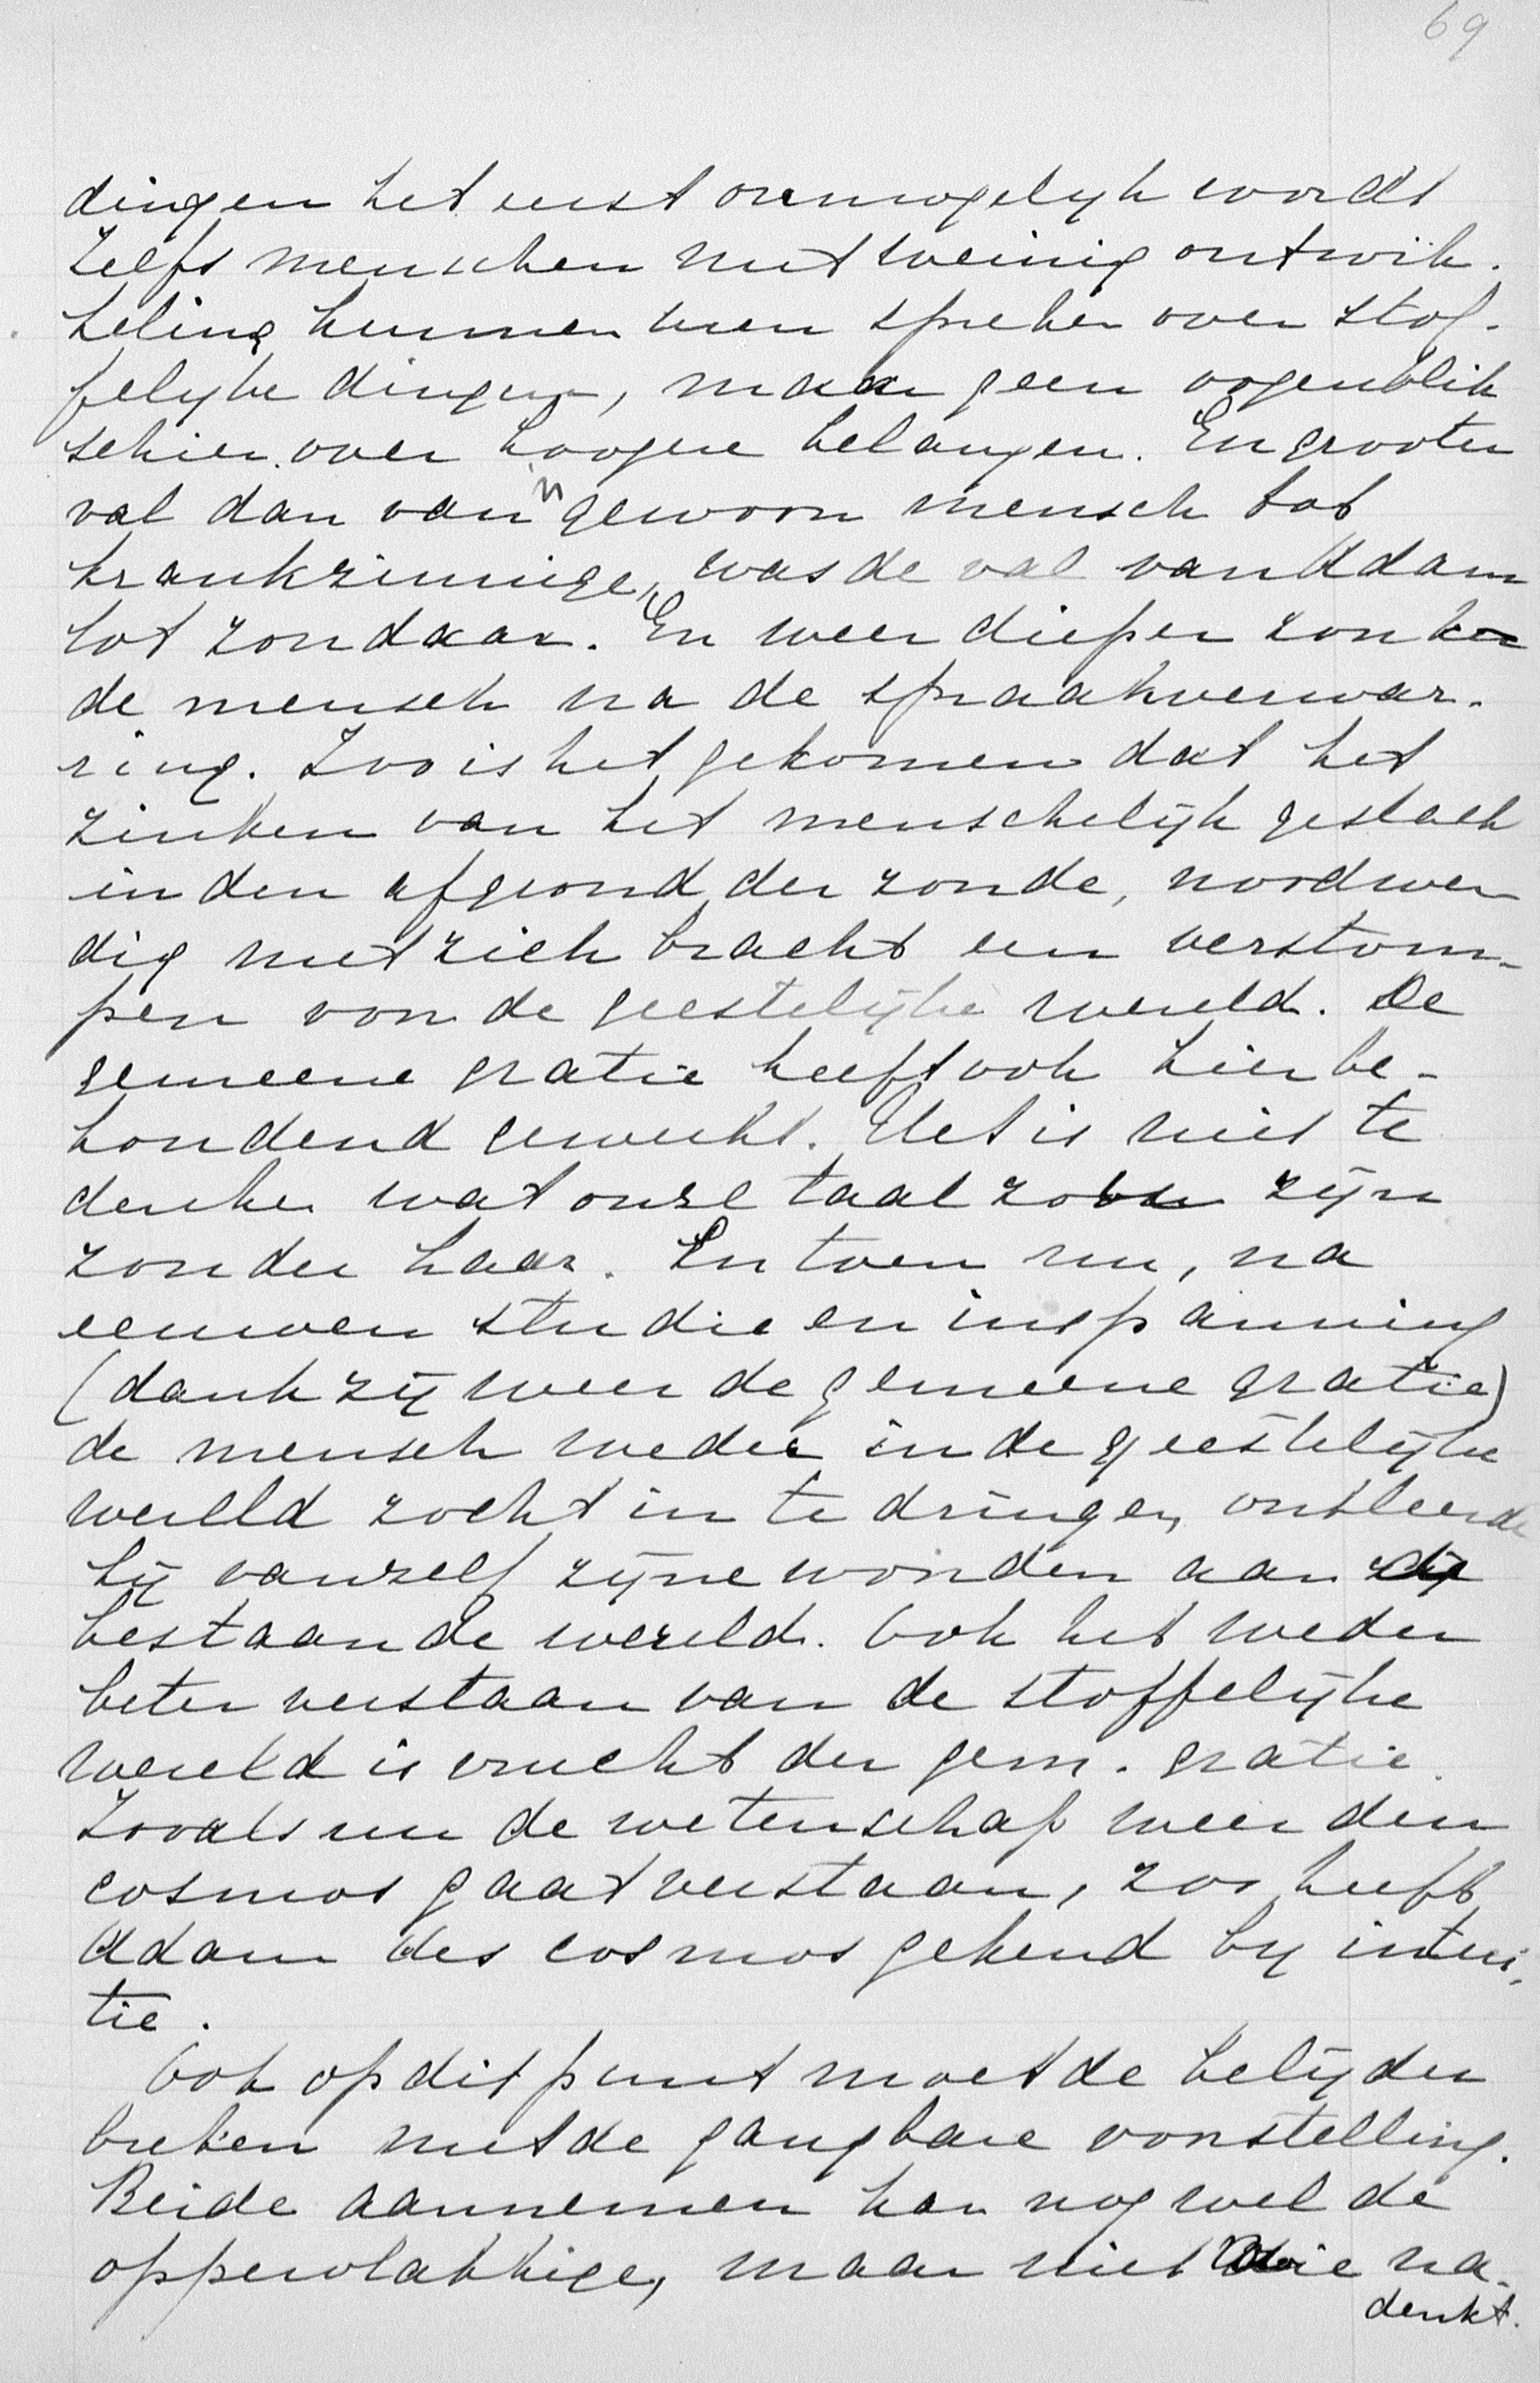 69
dingen het eerst onmogelijk wordt
Zelfs menschen met weinig ontwik-
keling kunnen uren spreken over stof-
felijke dingen, maar geen oogenblik
schier over hoogere belangen. En grooter
val dan van 'n gewoon mensch tot
krankzinnige, was de val van Adam
tot zondaar. En weer dieper zonk
de mensch na de spraakverwar-
ring. Zoo is het gekomen dat het
zinken van het menschelijk geslach
in den afgrond der zonde, noodwen
dig met zich bracht een verstom-
pen voor de geestelijke wereld. De
gemeene gratie heeft ook hier be-
houdend gewerkt. Het is niet te
denken wat onze taal zou zijn
zonder haar. En toen nu, na
eeuwen studie en inspanning
(dank zij weer de gemeene gratie)
de mensch weder in de geestelijke
wereld zocht in te dringen, ontleende
hij vanzelf zijne woorden aan de
bestaande wereld. Ook het weder
beter verstaan van de stoffelijke
wereld is vrucht der gem. gratie.
Zooals nu de wetenschap weer den
cosmos gaat verstaan, zoo heeft
Adam des cosmos gekend by intuï-
tie.
Ook op dit punt moet de belijder
breken met de gangbare voorstelling.
Beide aannemen kan nog wel de
oppervlakkige, maar niet wie na-
denkt.